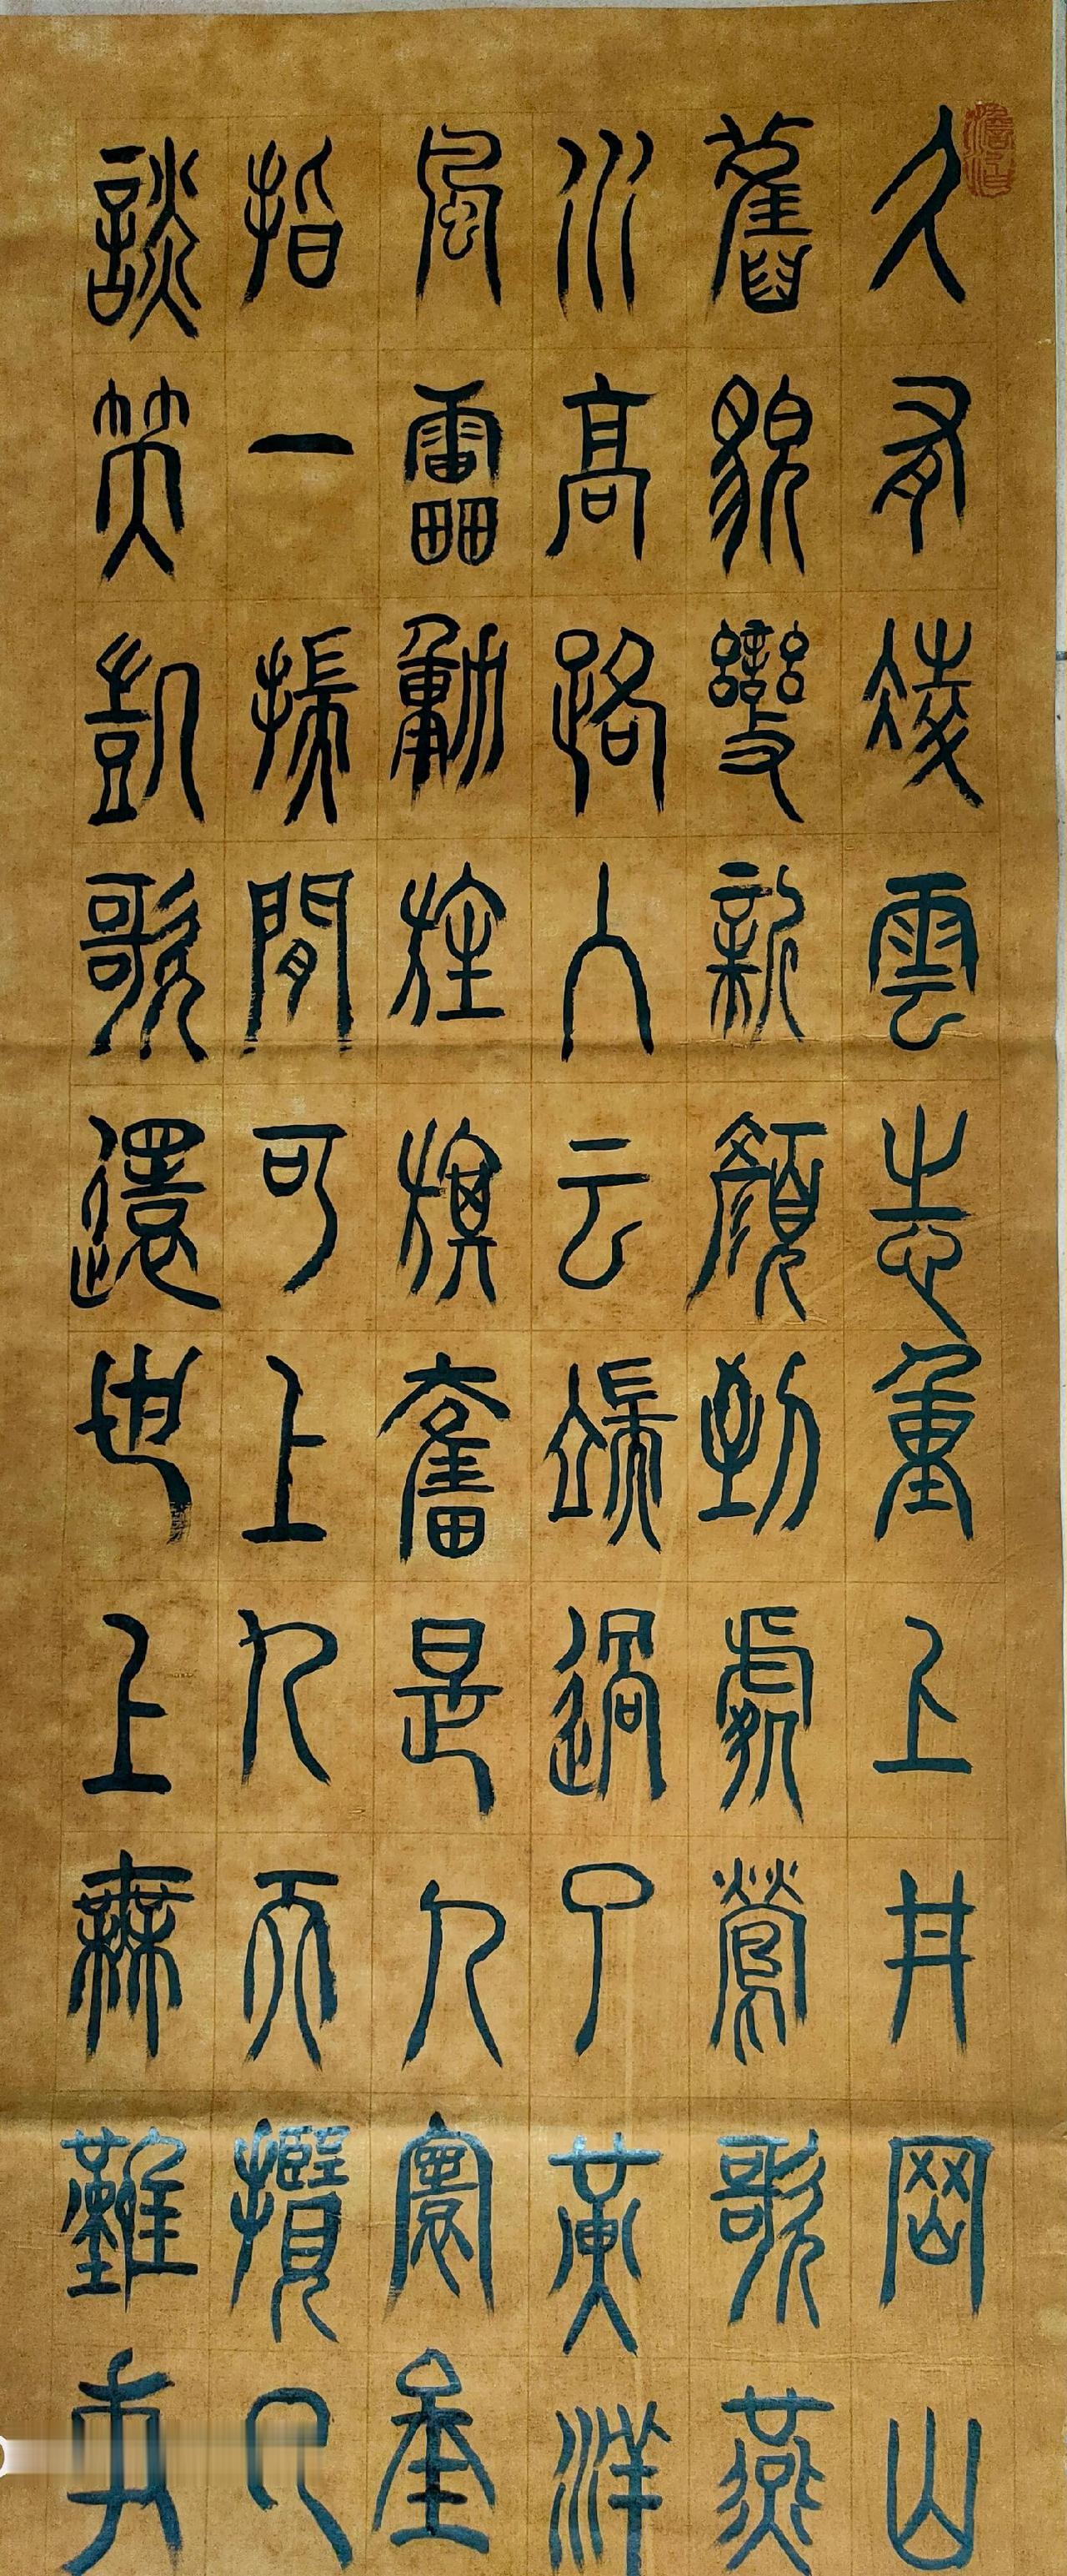 久有凌雲志重上井岡山
舊貌變新顏到處鶯歌燕
水高路入云端過了黃洋
風雷動旌旗奮是人寰
指一振間可上九天攬月
談笑凱歌還世上無難事